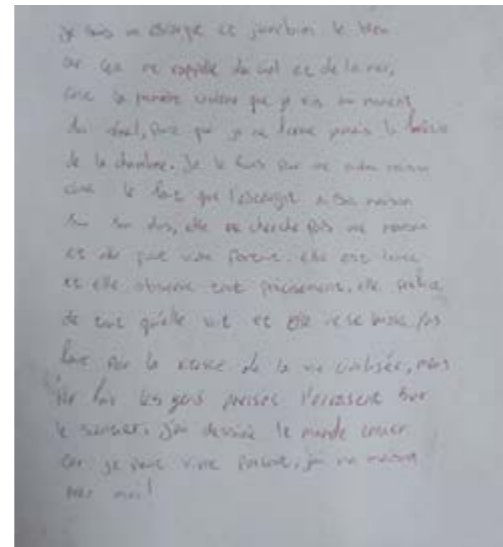 je suis un escargot et j'aime bien le bleu
car ça me rappelle du ciel et de la mer,
c'est la première couleur que je vois au moment
du réveil, parce que je ne ferme jamais le
de la chambre. Je le suis pour une autre raison
c'est le fait que l'escargot a sa maison
sur son dos, elle ne cherche pas une maison
et elle peut vivre partout. elle est lente
et elle observe tout précisément, elle profite
de tout qu'elle vit et elle ne se laisse pas
par la vitesse de la vie civilisée, mais
par fois les gens pressés l'écrasent sur
le j'ai dessiné le monde
car je peux vivre partout, j'ai ma maison
avec moi!